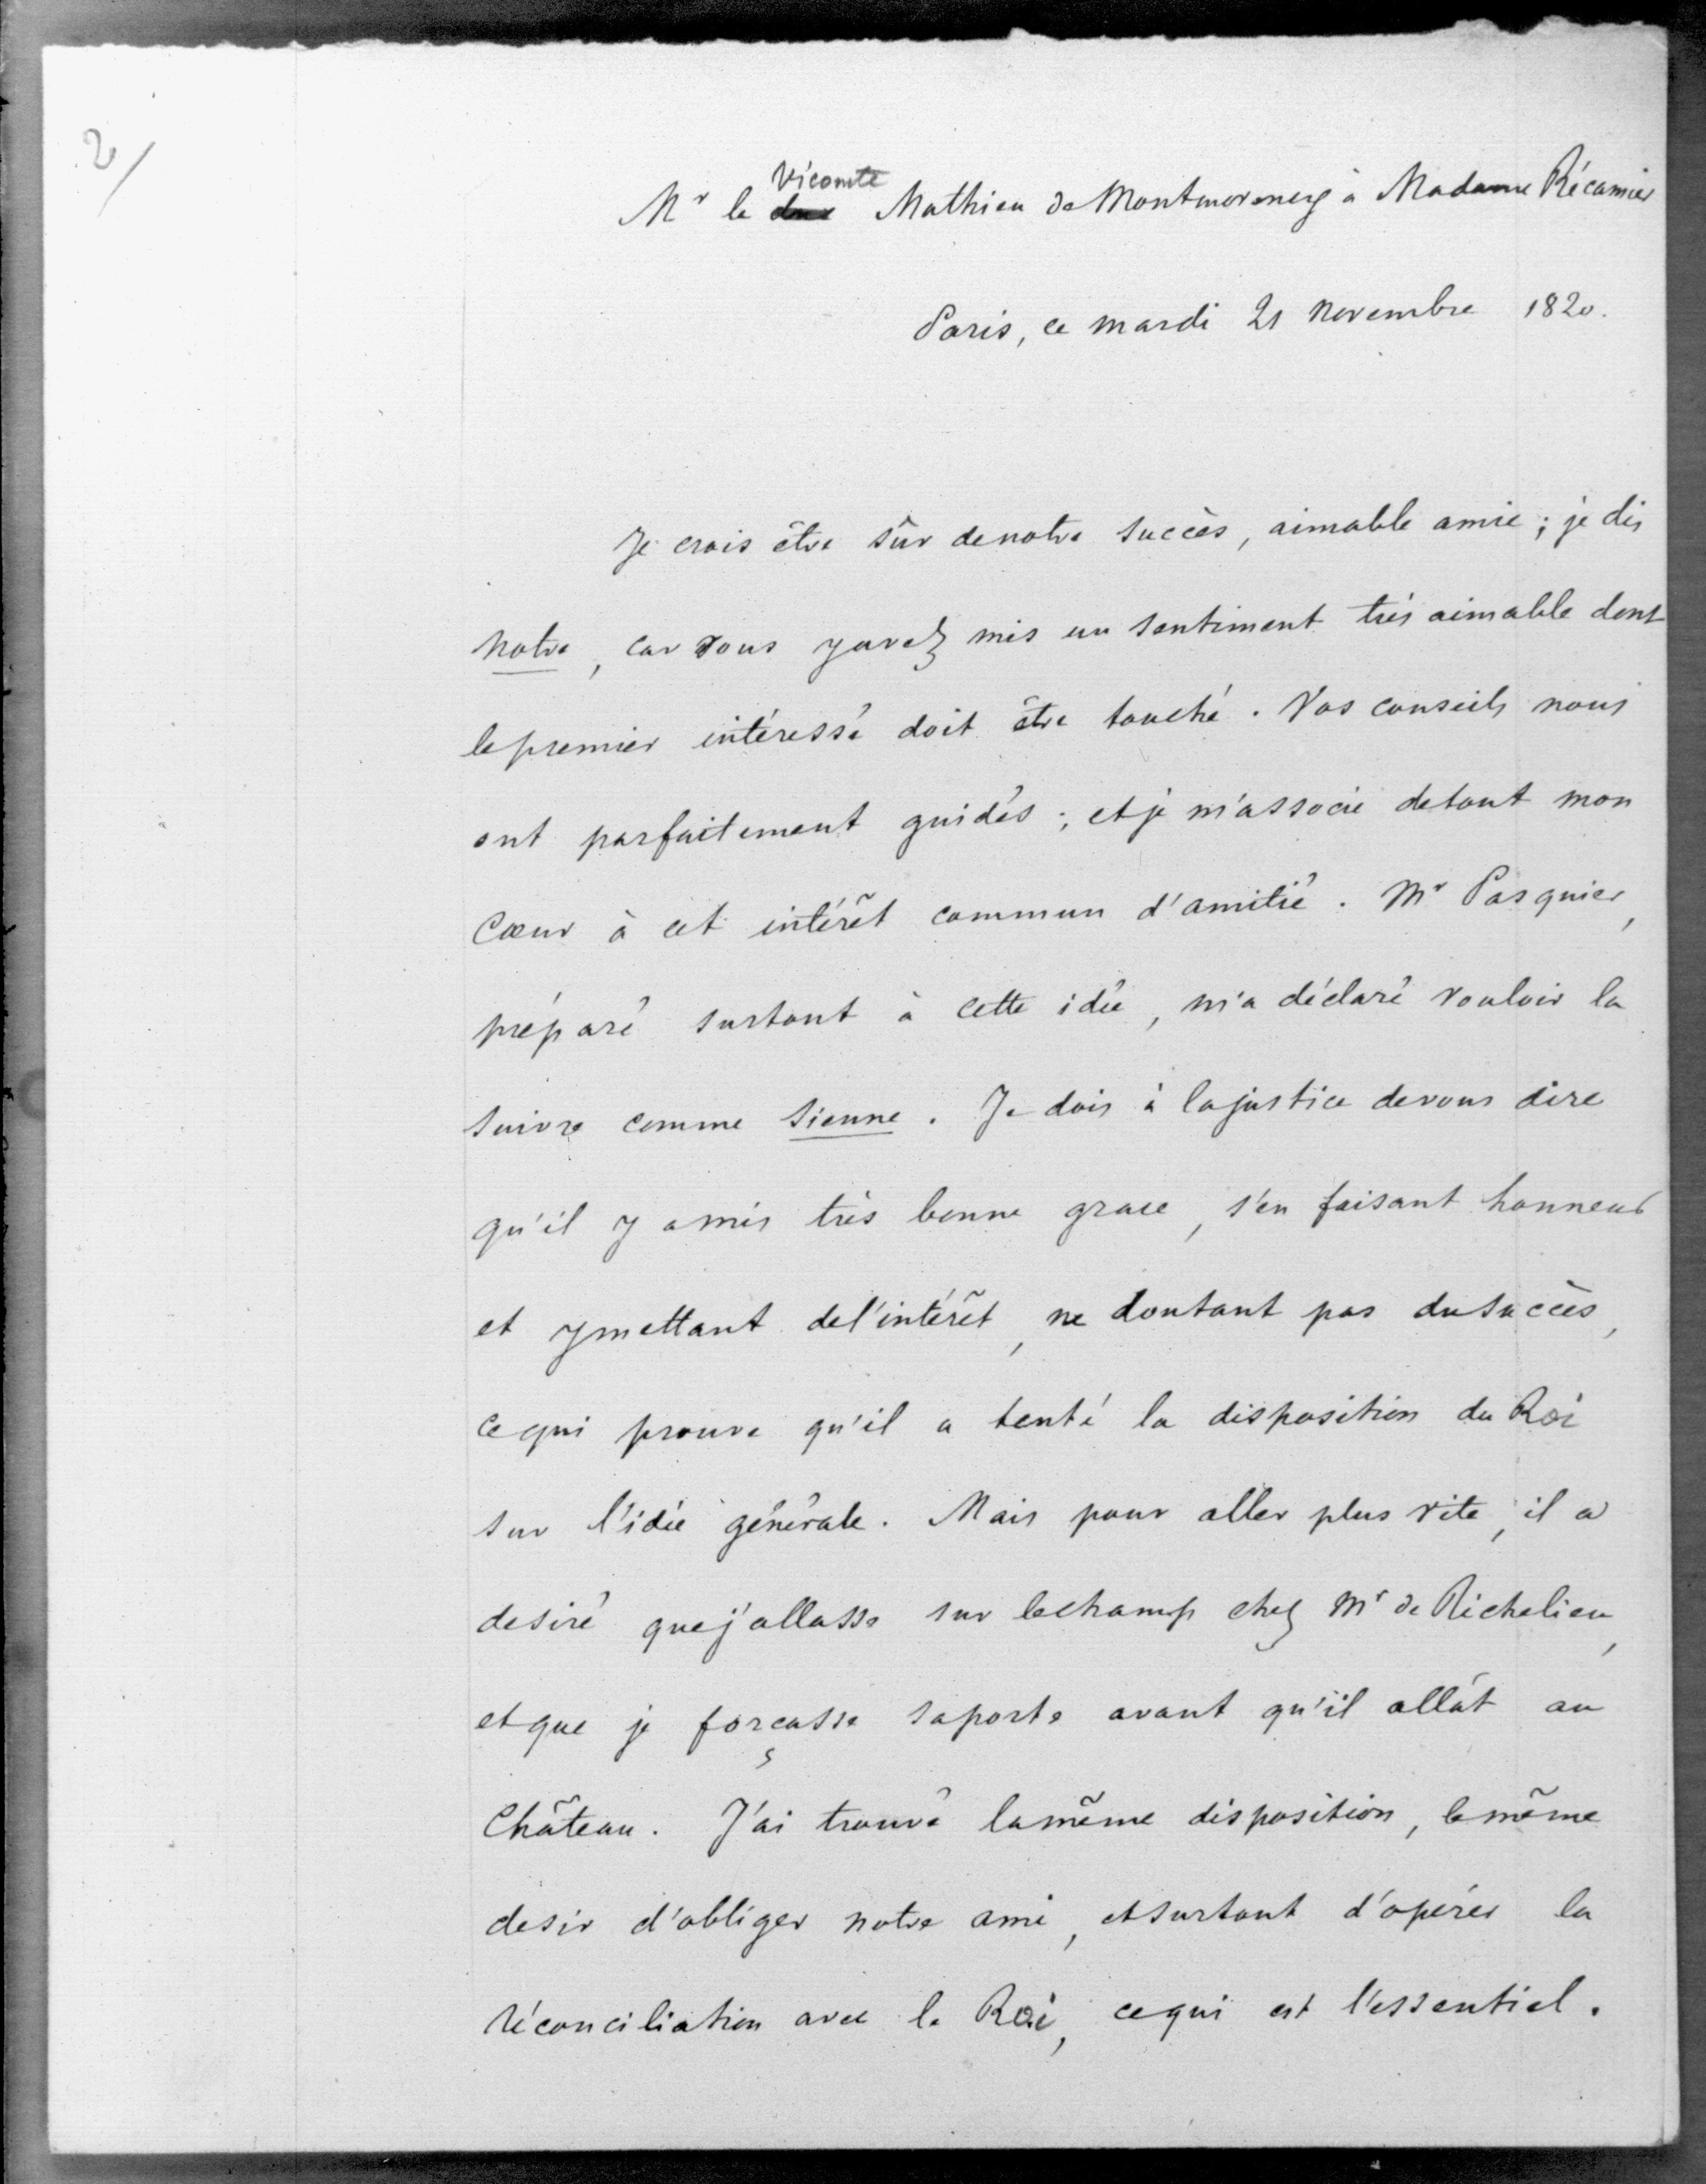 2/
Vicomte
Mr le duc Mathieu de Montmorency à Madame Récamier
Paris, ce mardi 21 novembre 1820.
Je crois être sûr de notre succès, aimable amie ; je dis
notre, car vous y avez mis un sentiment très aimable dont
le premier intéressé doit être touché. Vos conseils nous
ont parfaitement guidés ; et je m'associe de tout mon
cœur à cet intérêt commun d'amitié. Mr Pasquier,
préparé surtout à cette idée, m'a déclaré vouloir la
suivre comme sienne. Je dois à la justice de vous dire
qu'il y a mis très bonne grace, s'en faisant honneur
et y mettant de l'intérêt, ne doutant pas du succès,
ce qui prouve qu'il a tenté la disposition du Roi
sur l'idée générale. Mais pour aller plus vite, il a
desiré que j'allasse sur le champ chez Mr de Richelieu,
et que je forçasse sa porte avant qu'il allât au
Château. J'ai trouvé la même disposition, le même
desir d'obliger notre ami, et surtout d'opérer la
réconciliation avec le Roi, ce qui est l'essentiel.